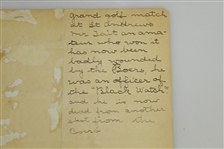 grand golf match
at St Andrews
Mr Tait an ama-
teur who won it
has now been
badly wounded
by the Boers, he
was an officer of
the "Black Watch"
and he is now
dead from another
shot from the
Boers